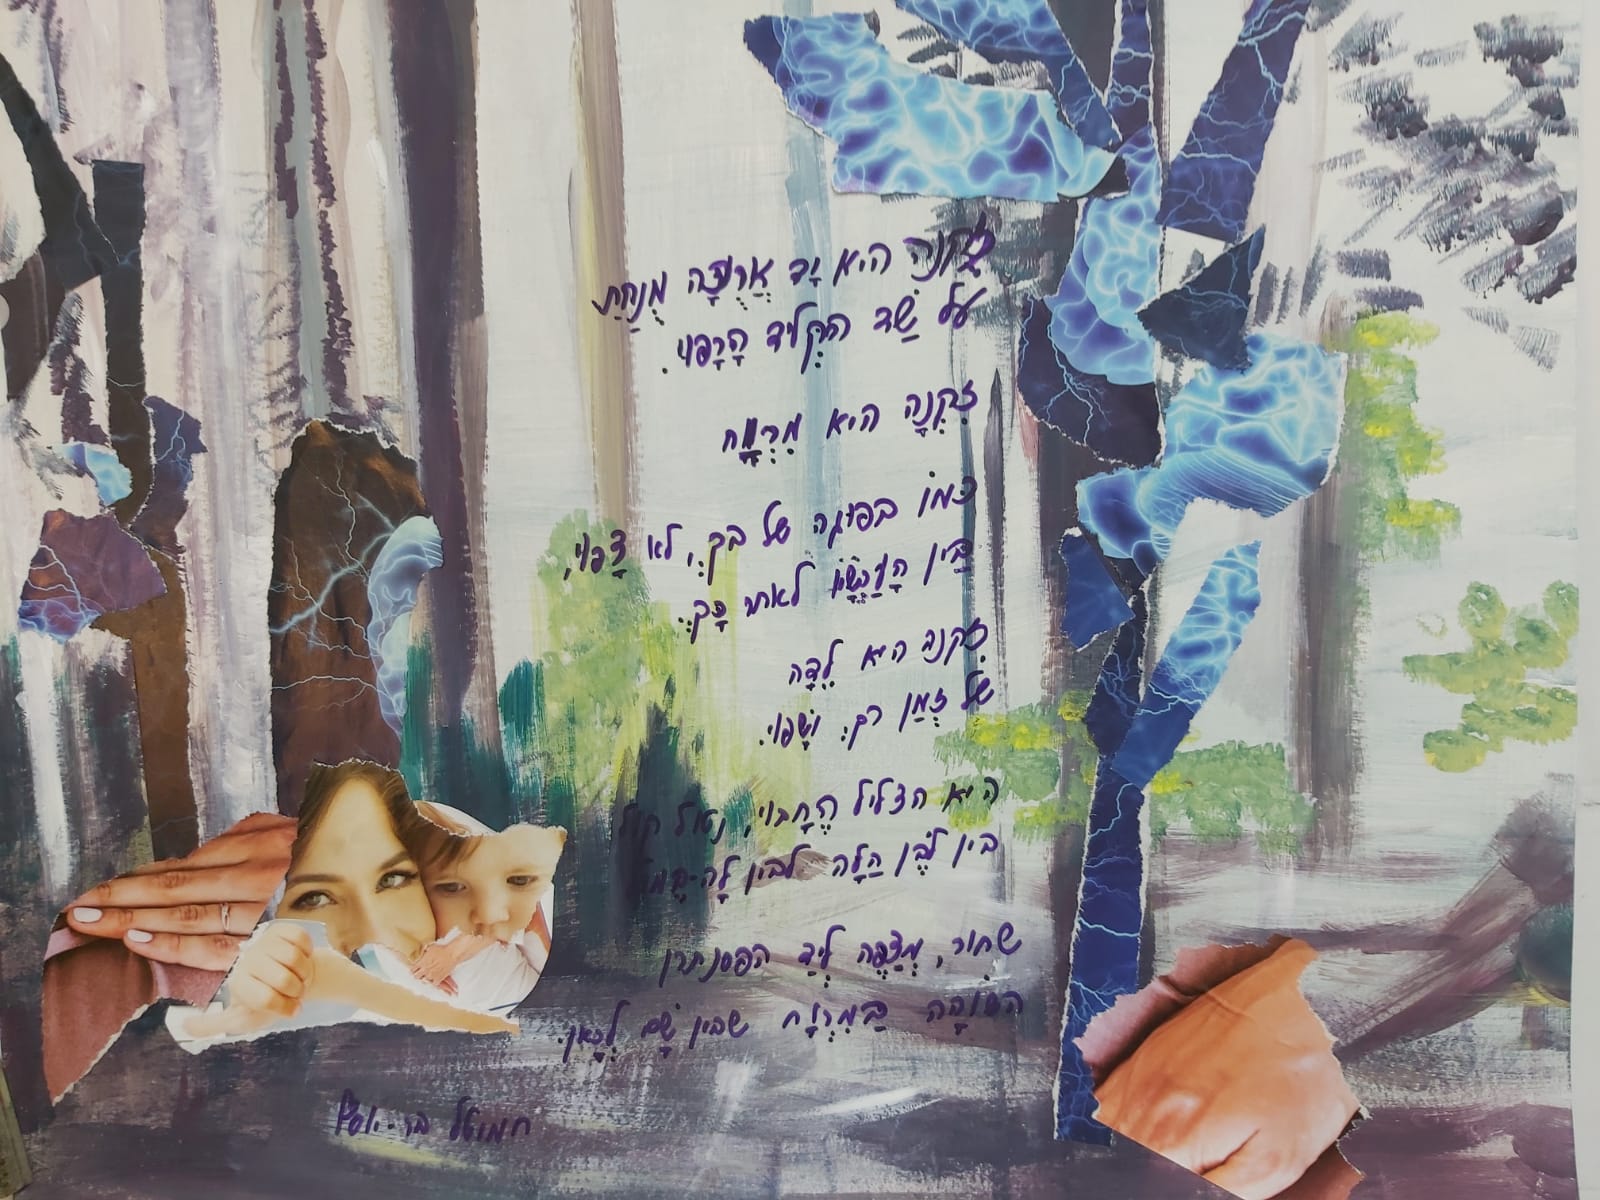 זִקְנָה הִיא יָד אֲרֻכָּה מֻנַּחַת
עַל שַׁד הַקְּלִיד הָרָפוּי.
זִקְנָה הִיא מִרְוָח
כְּמוֹ בפוגה של בך, לא צָפוּי,
בֵּין הָעַכְשָׁו לאחר כָּךְ.
זִקְנה היא לֵדָה
של זְמַן רַךְ, וְשָׁפוּי.
היא הצליל הֶחָבוּי, נטול קול
בין לבֶן הַלָּה לבין לָה-בֶּמול
שחור, מְצַפֶּה לְיַד הפסנתרן
הטוֹבָה בַּמִּרְוָח שבין שָׁם לְכָאן.
חמוטל בר-יוסף